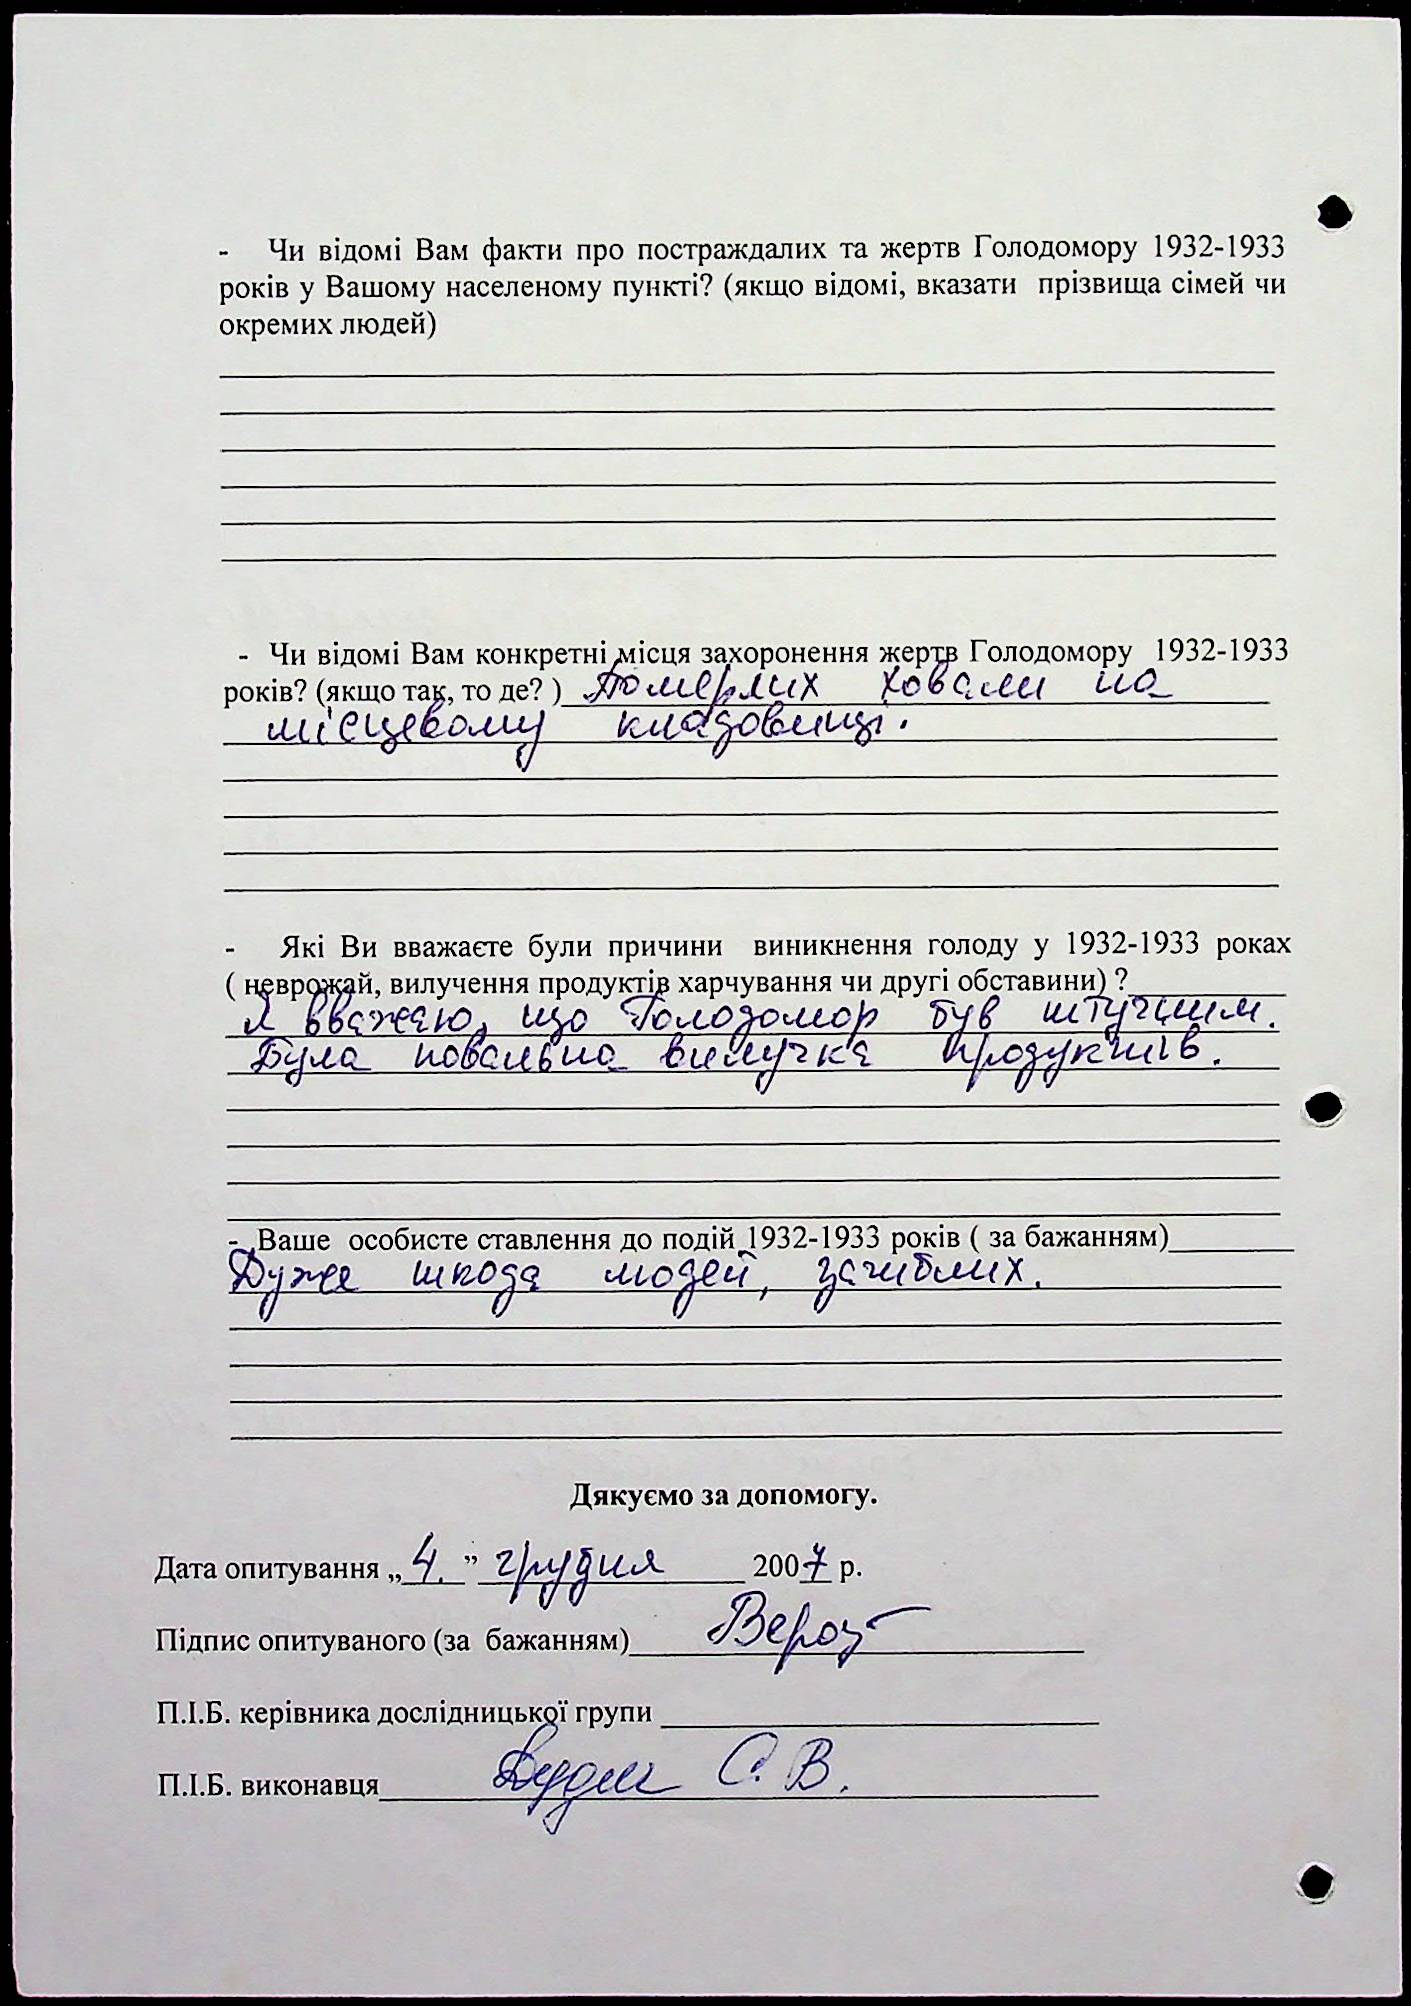 - Чи відомі Вам факти про постраждалих та жертв Голодомору 1932-1933
років у Вашому населеному пункті? (якщо відомі, вказати прізвища сімей чи
окремих людей)
- Чи відомі Вам конкретні місця захоронення жертв Голодомору 1932-1933
років? (якщо так, то де? ) Померлих ховали на
місцевому кладовищі.
- Які Ви вважаєте були причини виникнення голоду у 1932-1933 роках
( неврожай, вилучення продуктів харчування чи другі обставини) ?
Я вважаю, що Голодомор був штучним.
Була повальна вилучка продуктів.
- Ваше особисте ставлення до подій 1932-1933 років ( за бажанням)
Дуже шкода людей, загиблих.
Дякуємо за допомогу.
Дата опитування „ 4. ” грудня 2007 р.
Підпис опитуваного (за бажанням)
П.І.Б. керівника дослідницької групи
П.І.Б. виконавця С. В.